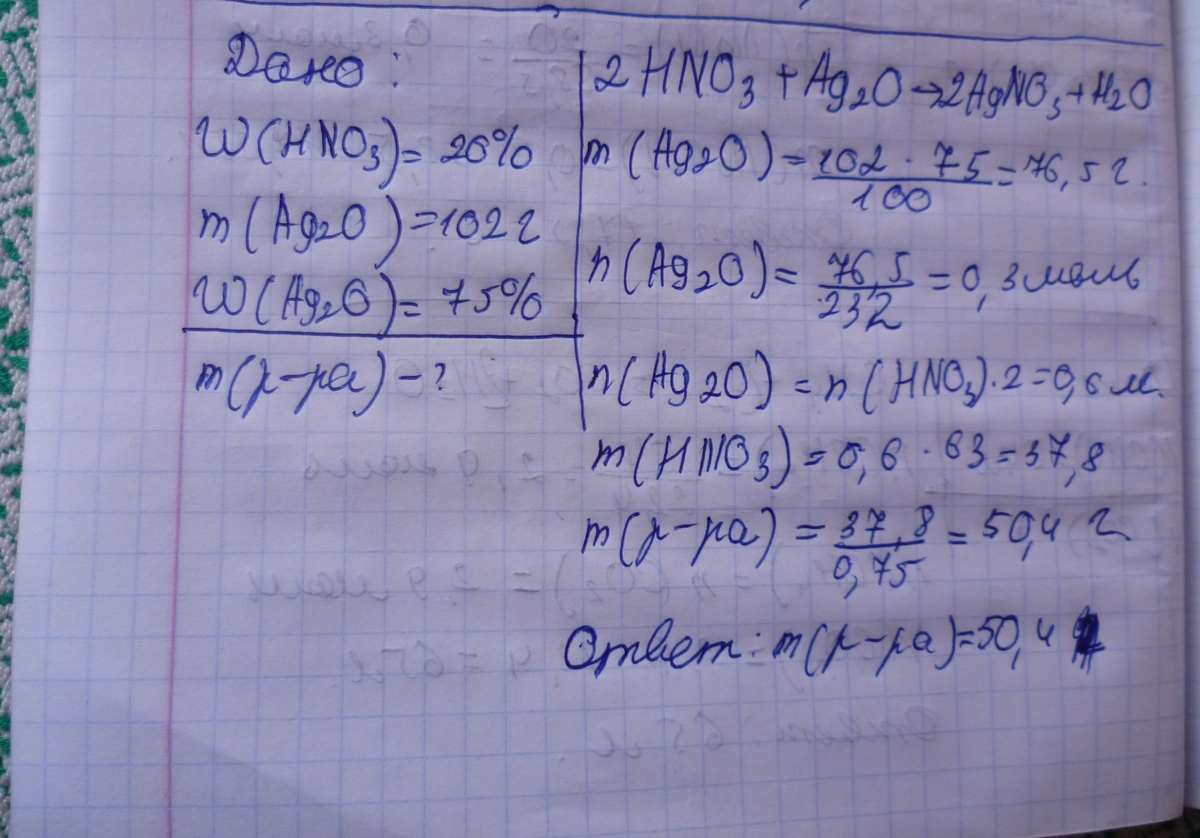 Дано:
W(HNO3)=20%
m(Ag2O)=102г
W(Ag2O)=75%
m(р-ра)-?
2HNO3+Ag2O→2AgNO3+H2O
m(Ag2O)=102·75/100=76,5г.
n(Ag2O)=76,5/232=0,3моль
n(Ag2O)=n(HNO3)·2=0,6м.
m(HNO3)=0,6·63=37,8
m(р-ра)=37,8/0,75=50,4 г
Ответ: m(р-ра)=50,4